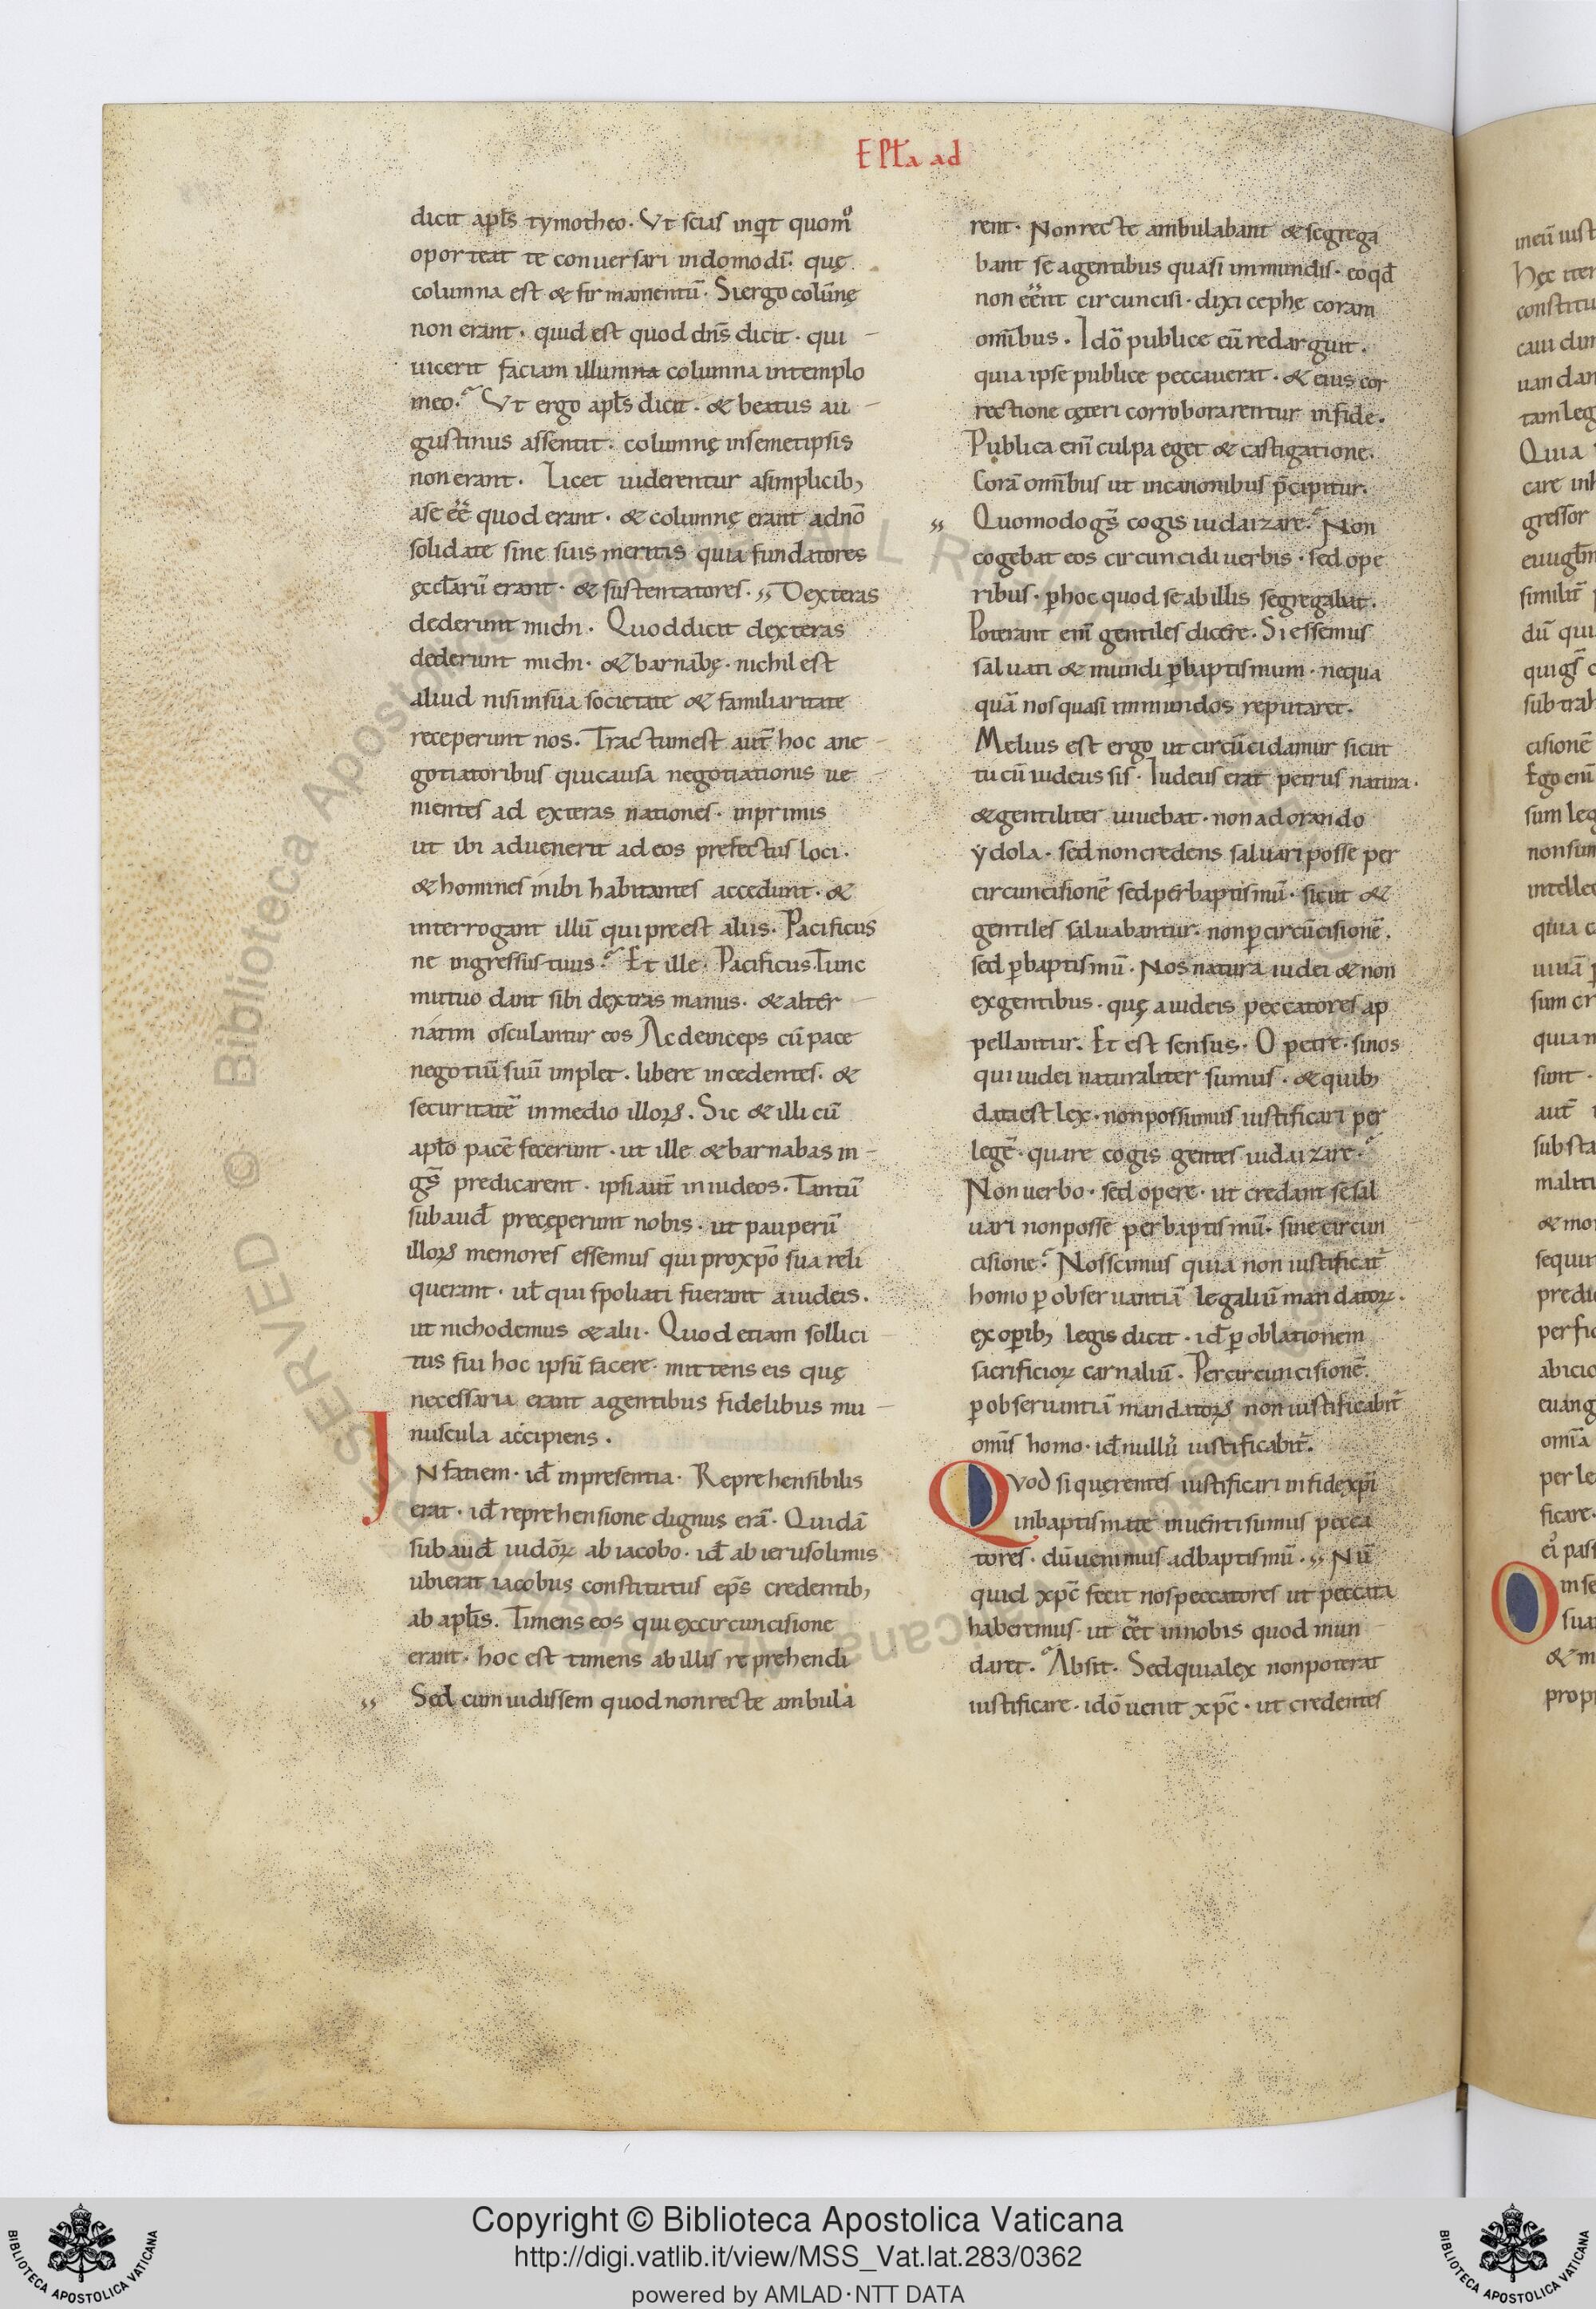 EPLa ad
dicit apls tymotheo. Vt scias inqt quomo
oporteat te conuersari indomodi. quę
columna est & firmamentū. Siergo colūnę
non erant. quid est quod dns dicit. qui
uicerit faciam illumna columna intemplo
meo. Vt ergo apls dicit. & beatus au
gustinus assentit. columnę insemetipsis
non erant. Licet uiderentur asimplicib;
ase ee quod erant. & columnę erant adnō
solidate sine suis meritis quia fundatores
ęcclarū erant. & sustentatores. ,, Dexteras
dederunt michi. Quoddicit dexteras
dederunt michi. & barnabę. nichil est
aliud nisi insua societate & familiaritate
receperunt nos. Tractumest aut hoc ane
gotiatoribus quicausa negotiationis ue
nientes ad exteras nationes. inprimis
ut ibi aduenerit adeos prefectus loci.
& homines inibi habitantes accedunt. &
interrogant illū qui preest aliis. Pacificus
ne ingressus tuus. Et ille. Pacificus. Tunc
mutuo dant sibi dextras manus. & alter
natim osculantur eos Ac deinceps cū pace
negotiū suū implet. libere incedentes. &
securitatē inmedio illoꝝ. Sic & illi cū
aplo pacē fecerunt. ut ille & barnabas in
gs predicarent. ipsi aut in iudeos. Tantū
subaud preceperunt nobis. ut pauperū
illoꝝ memores essemus qui proxpo sua reli
querant. ul qui spoliati fuerant aiudeis.
ut nichodemus & alii. Quod etiam sollici
tus fui hoc ipsū facere. mittens eis quę
necessaria erant agentibus fidelibus mu
nuscula accipiens.
JN fatiem. id inpresentia. Reprehensibilis
erat. id reprehensione dignus erā. Quidā
subaud iudōꝝ ab iacobo. id ab ierusolimis
ubierat iacobus constitutus eps credentib;
ab aplis. Timens eos qui excircuncisione
erant. hoc est timens ab illis reprehendi
,, Sed cum uidissem quod nonrecte ambula
rent. Nonrecte ambulabant & segrega
bant se agentibus quasi immundis. eoqd
non eent circuncisi. dixi cephę coram
omibus. Idō publice eū redarguit.
quia ipse publice peccauerat. & eius cor
rectione cęteri corroborarentur infide.
Publica eni culpa eget & castigatione.
Corā omibus ut incanonibus pcipitur.
,, Quomodo gs cogis iudaizare. Non
cogebat eos circuncidi uerbis. sed ope
ribus. phoc quod se ab illis segregabat.
Poterant eni gentiles dicere. Si essemus
saluati & mundi pbaptismum. nequa
quā nos quasi immundos reputaret.
Melius est ergo ut circūcidamur sicut
tu cū iudeus sis. Iudeus erat petrus natura.
& gentiliter uiuebat. non adorando
ydola. sed non credens saluari posse per
circuncisionē sed per baptismū. sicut &
gentiles saluabantur. non p circūcisionē.
sed pbaptismū. Nos natura iudei & non
exgentibus. quę a iudeis peccatores ap
pellantur. Et est sensus. O petre. sinos
qui iudei naturaliter sumus. & quib;
data est lex. non possumus iustificari per
legē. quare cogis gentes iudaizare.
Non uerbo. sed opere. ut credant se sal
uari non posse per baptismū. sine circun
cisione. Nos scimus quia non iustificat
homo p obseruantiā legaliū mandatoꝝ.
ex opib; legis dicit. id p oblationem
sacrificioꝝ carnaliū. Per circuncisionē.
p obseruantiā mandatoꝝ non iustificabit
omis homo. id nullus iustificabit.
Qvod si quęrentes iustificari in fide xpi
in baptismate inuenti sumus pecca
tores. dū uenimus ad baptismū. ,, Nū
quid xpc fecit nos peccatores ut peccata
haberemus. ut eet innobis quod mun
daret. Absit. Sed quia lex non poterat
iustificare. idō uenit xpc. ut credentes
Copyright © Biblioteca Apostolica Vaticana
http://digi.vatlib.it/view/MSS_Vat.lat.283/0362
powered by AMLAD·NTT DATA
BIBLIOTECA APOSTOLICA VATICANA
BIBLIOTECA APOSTOLICA VATICANA